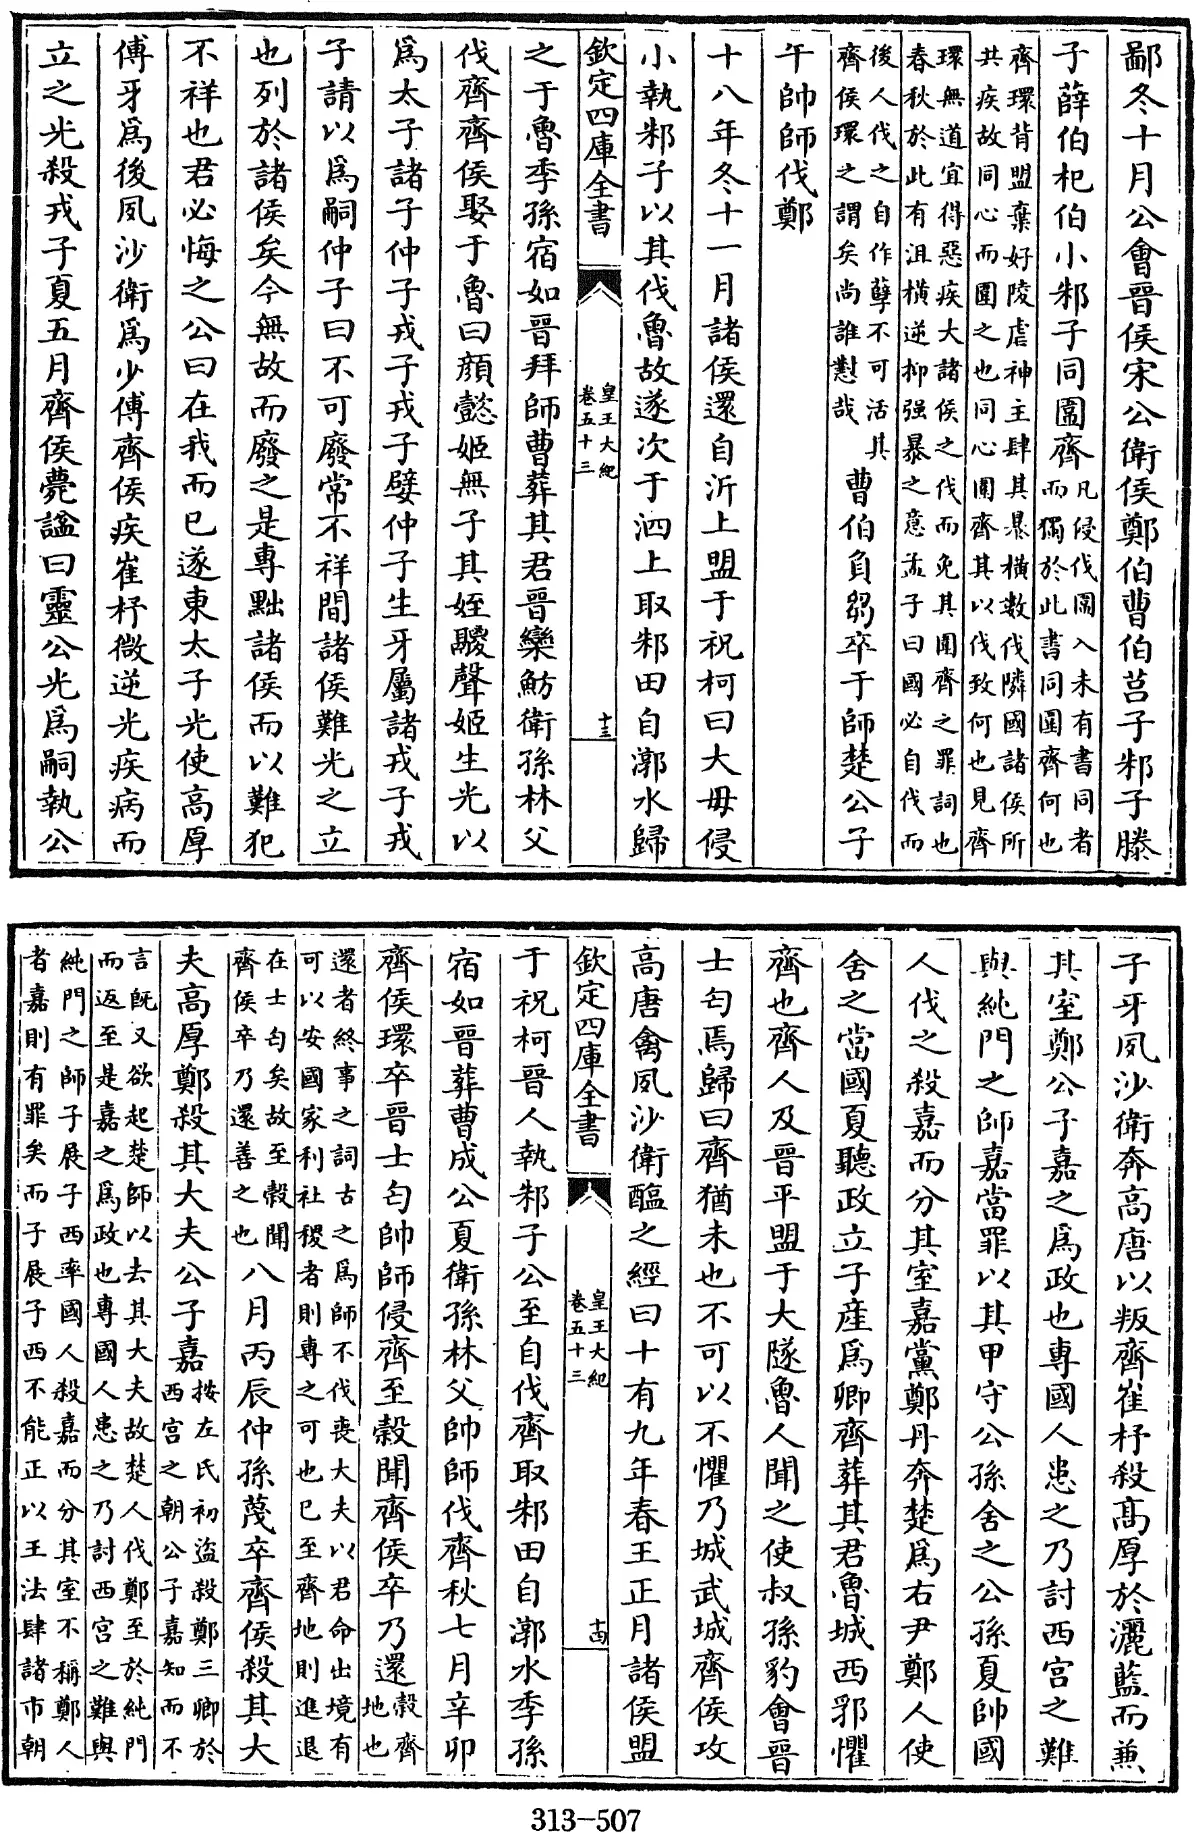 鄙冬十月公會晉侯宋公衛侯鄭伯曹伯莒子邾子滕
子薛伯杞伯小邾子同圍齊
凡侵伐圍入未有書同者
而獨於此書同圍齊何也
齊環背盟棄好陵虐神主肆其暴橫數伐隣國諸侯所
共疾故同心而圍之也同心圍齊其以伐致何也見齊
環無道宜得惡疾大諸侯之伐而免其圍齊之罪詞也
春秋於此有沮橫逆抑强暴之意孟子曰國必自伐而
後人伐之自作孽不可活其
齊侯環之謂矣尚誰懟哉
曹伯負芻卒于師楚公子
午帥師伐鄭
十八年冬十一月諸侯還自沂上盟于祝柯曰大毋侵
小執邾子以其伐魯故遂次于泗上取邾田自漷水歸
欽定四庫全書
皇王大紀
卷五十三
十三
之于魯季孫宿如晉拜師曹葬其君晉欒魴衛孫林父
伐齊齊侯娶于魯曰顔懿姬無子其姪鬷聲姬生光以
爲太子諸子仲子戎子戎子嬖仲子生牙屬諸戎子戎
子請以爲嗣仲子曰不可廢常不祥間諸侯難光之立
也列於諸侯矣今無故而廢之是專黜諸侯而以難犯
不祥也君必悔之公曰在我而已遂東太子光使高厚
傅牙爲後夙沙衛爲少傅齊侯疾崔杼微逆光疾病而
立之光殺戎子夏五月齊侯薨諡曰靈公光爲嗣執公
子牙夙沙衛奔高唐以叛齊崔杼殺髙厚於灑藍而兼
其室鄭公子嘉之爲政也專國人患之乃討西宮之難
與純門之師嘉當罪以其甲守公孫舍之公孫夏帥國
人伐之殺嘉而分其室嘉黨鄭丹奔楚爲右尹鄭人使
舍之當國夏聽政立子産爲卿齊葬其君魯城西郛懼
齊也齊人及晉平盟于大隧魯人聞之使叔孫豹會晉
士匄焉歸曰齊猶未也不可以不懼乃城武城齊侯攻
高唐禽夙沙衛醢之經曰十有九年春王正月諸侯盟
欽定四庫全書
皇王大紀
卷五十三
十四
于祝柯晉人執邾子公至自伐齊取邾田自漷水季孫
宿如晉葬曹成公夏衛孫林父帥師伐齊秋七月辛卯
齊侯環卒晉士匄帥師侵齊至穀聞齊侯卒乃還
穀齊
地也
還者終事之詞古之爲師不伐喪大夫以君命出境有
可以安國家利社稷者則專之可也已至齊地則進退
在士匄矣故至穀聞
齊侯卒乃還善之也
八月丙辰仲孫蔑卒齊侯殺其大
夫高厚鄭殺其大夫公子嘉
按左氏初盜殺鄭三卿於
西宮之朝公子嘉知而不
言旣又欲起楚師以去其大夫故楚人伐鄭至於純門
而返至是嘉之爲政也專國人患之乃討西宮之難與
純門之師子展子西率國人殺嘉而分其室不稱鄭人
者嘉則有罪矣而子展子西不能正以王法肆諸市朝
313-507